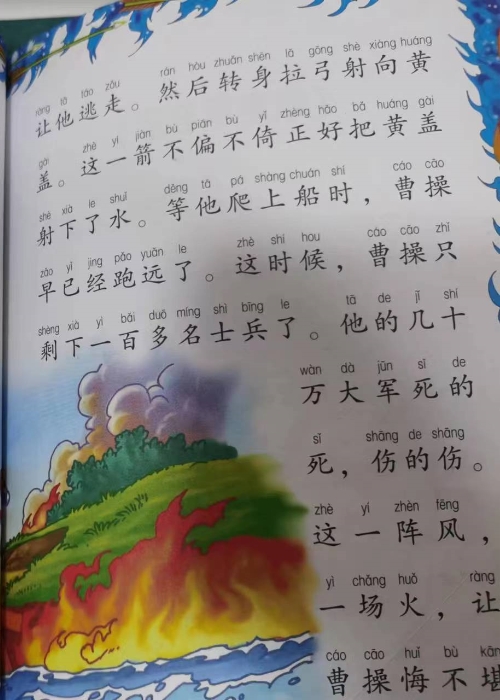 ràng tā táo zǒu rán hòu zhuǎn shēn lā gōng shè xiàng huáng
让他逃走。然后转身拉弓射向黄
gài zhè yí jiàn bù piān bù yǐ zhèng hǎo bǎ huáng gài
盖。这一箭不偏不倚正好把黄盖
shè xià le shuǐ děng tā pá shàng chuán shí cáo cāo
射下了水。等他爬上船时，曹操
zǎo yǐ jīng pǎo yuǎn le zhè shí hou cáo cāo zhǐ
早已经跑远了。这时候，曹操只
shèng xià yì bǎi duō míng shì bīng le tā de jǐ shí
剩下一百多名士兵了。他的几十
wàn dà jūn sǐ de
万大军死的
sǐ shāng de shāng
死，伤的伤。
zhè yí zhèn fēng
这一阵风，
yì chǎng huǒ ràng
一场火，让
cáo cāo huǐ bù kān
曹操悔不堪